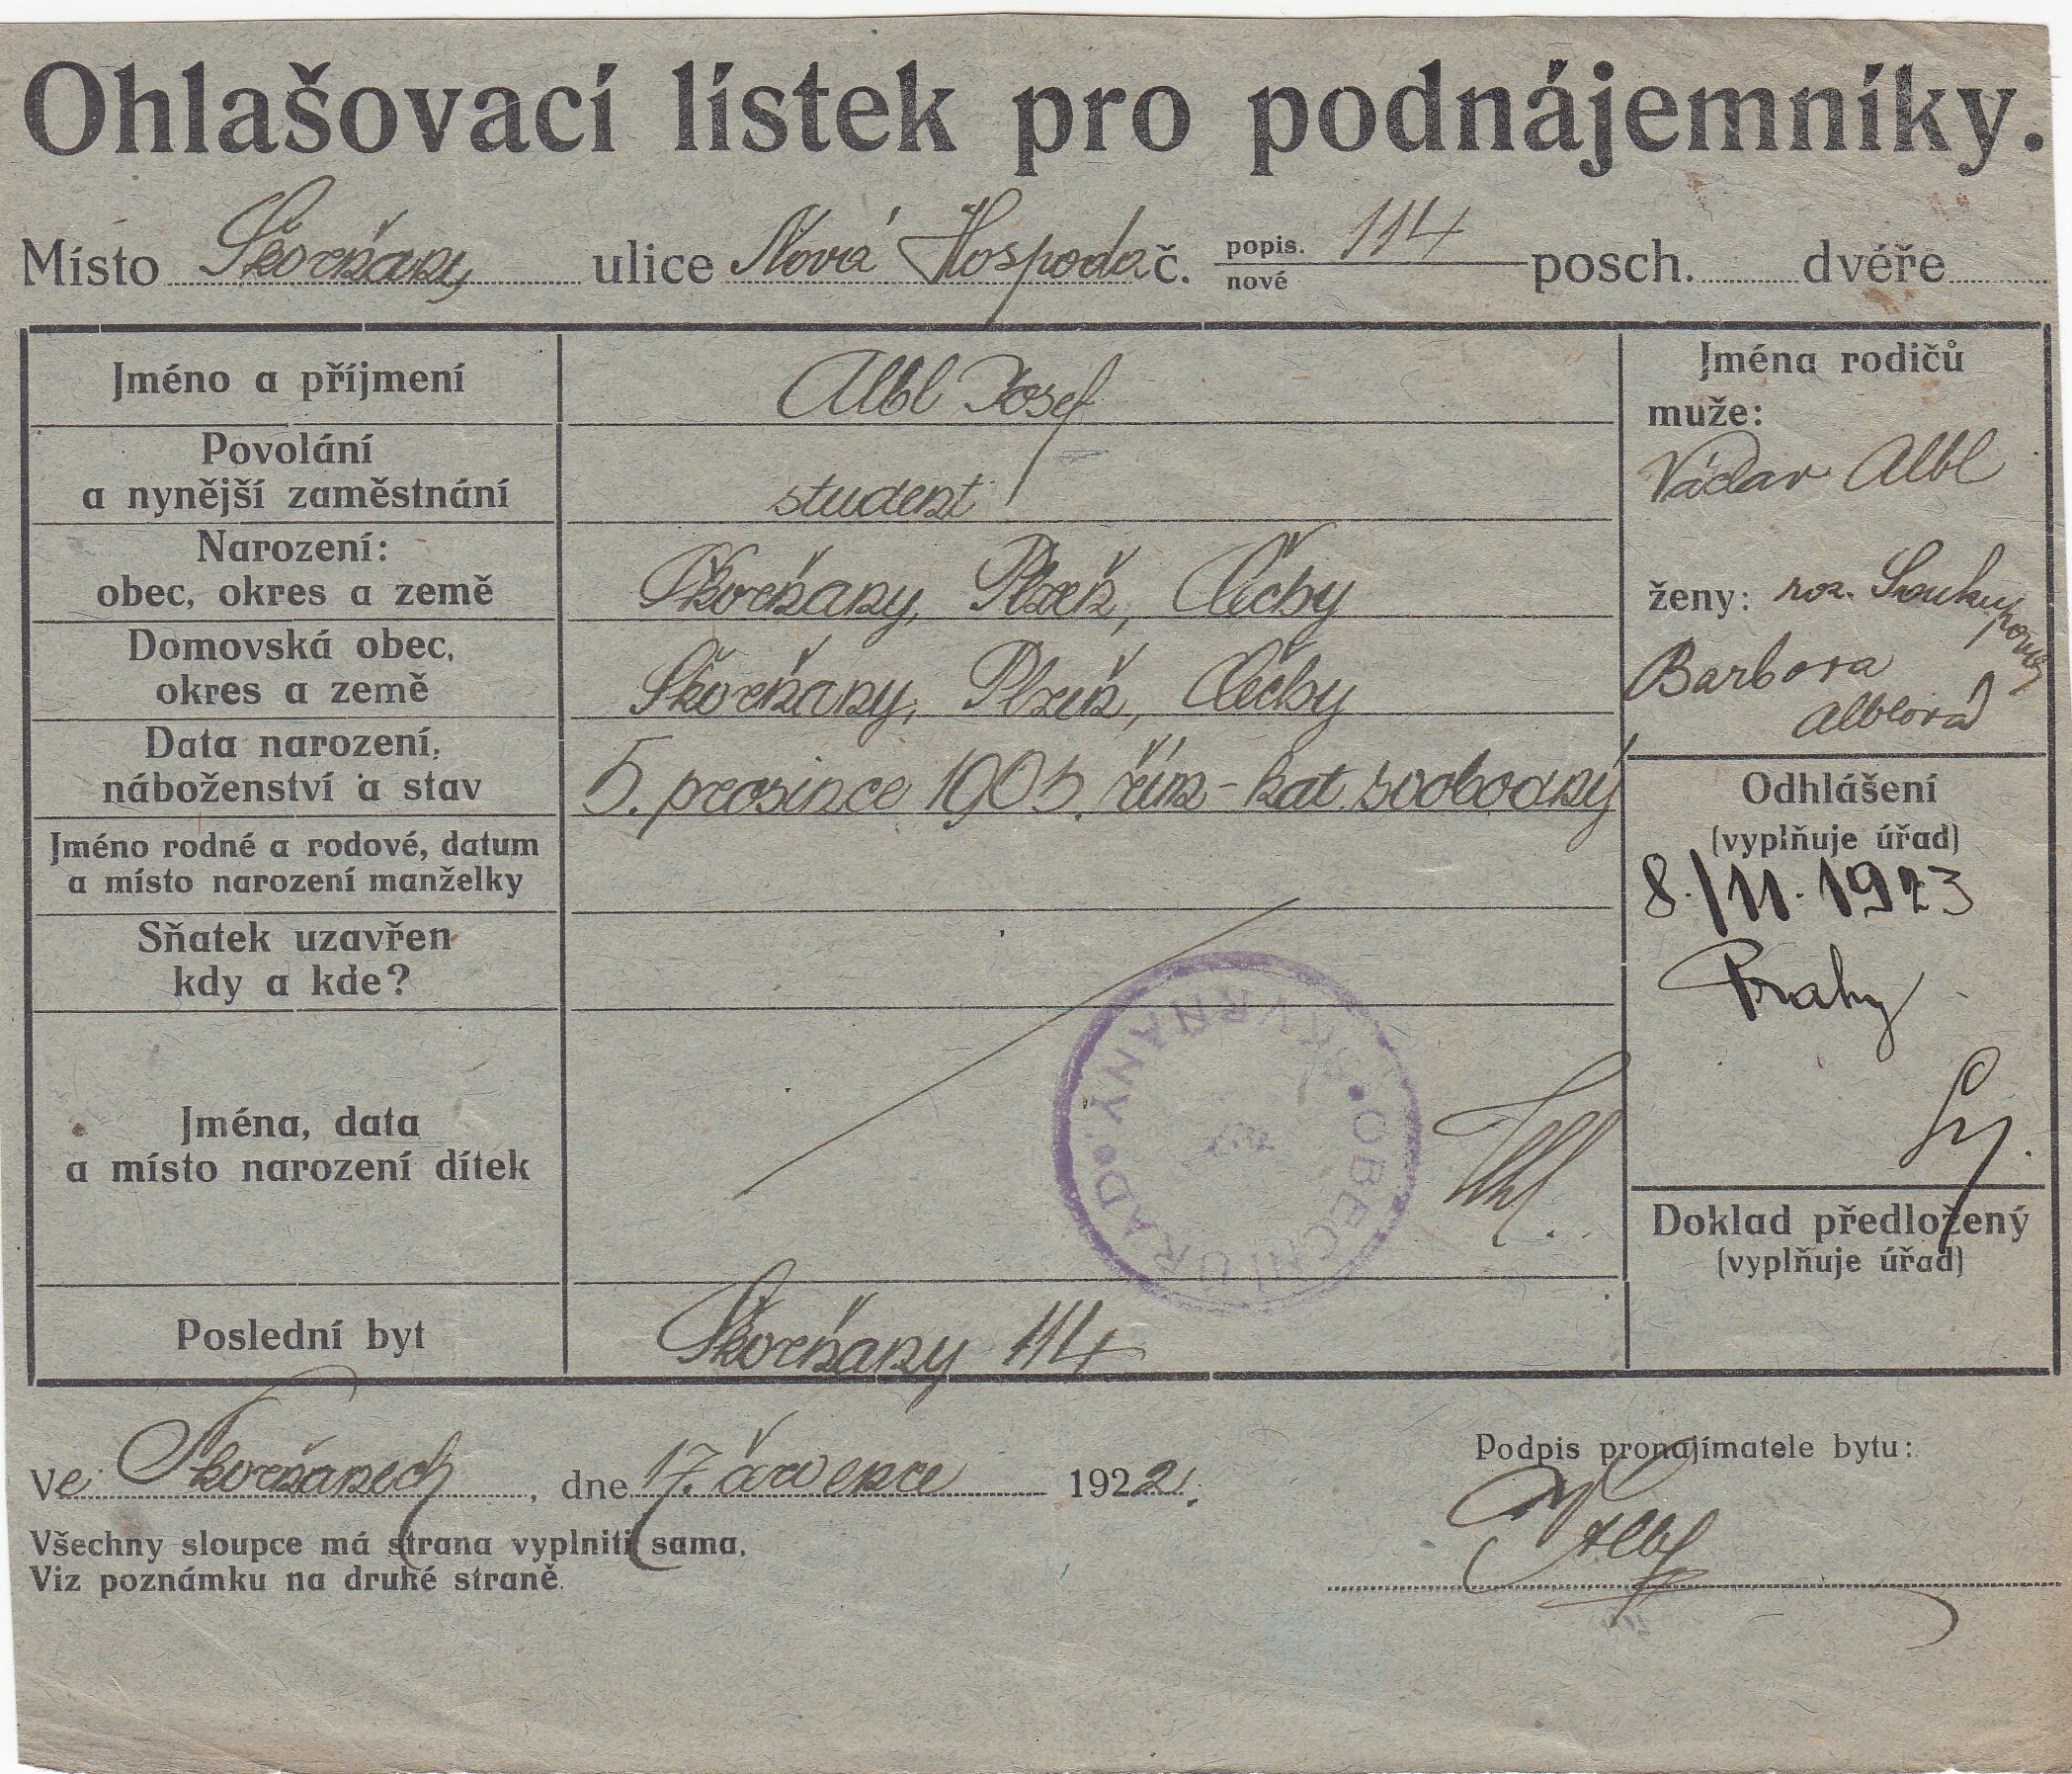 Ohlašovací lístek pro podnájemníky.
Místo Škvrňany ulice Nová Hospoda č. popis. 114 posch. dvéře
nové
Jméno a příjmení
Albl Josef
Povolání
a nynější zaměstnání
student
Narození:
obec, okres a země
Škvrňany, Plzeň, Čechy
Domovská obec,
okres a země
Škvrňany, Plzeň, Čechy
Data narození,
náboženství a stav
5. prosince 1905. řím-kat. svobodný
Jméno rodné a rodové, datum
a místo narození manželky
Sňatek uzavřen
kdy a kde?
Jména, data
a místo narození dítek
OBECNÍ ÚŘAD ŠKVRŇANY
Poslední byt
Škvrňany 114
Jména rodičů
muže:
Václav Albl
ženy: roz. Soukupova
Barbora
Alblová
Odhlášení
(vyplňuje úřad)
8./11. 1923
Prahy
Doklad předložený
(vyplňuje úřad)
Ve Škvrňanech, dne 17. července 1922.
Podpis pronajímatele bytu:
Albl
Všechny sloupce má strana vyplniti sama.
Viz poznámku na druhé straně.